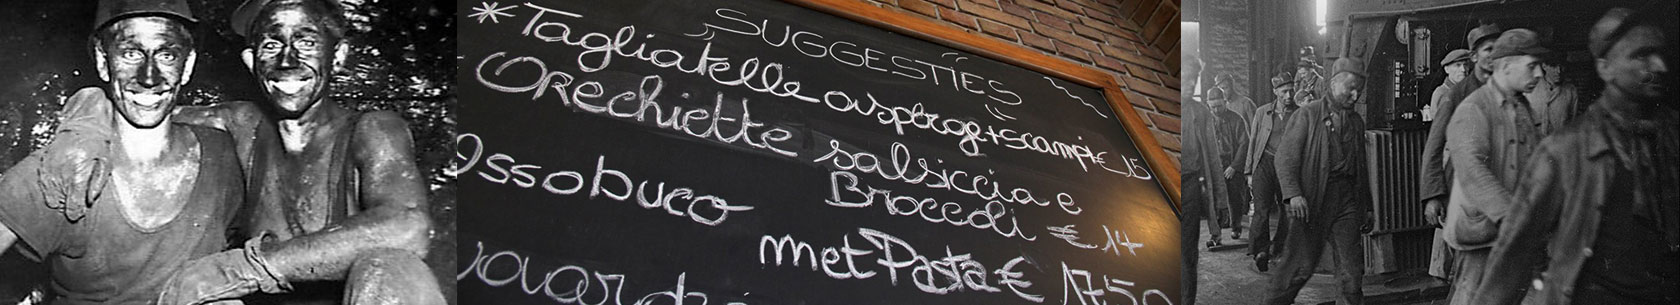 SUGGESTIES
*Tagliatelle asperge+scampi € 15
Orechiette salsiccia e
Broccoli € 14
Ossobuco
met Pasta € 1750